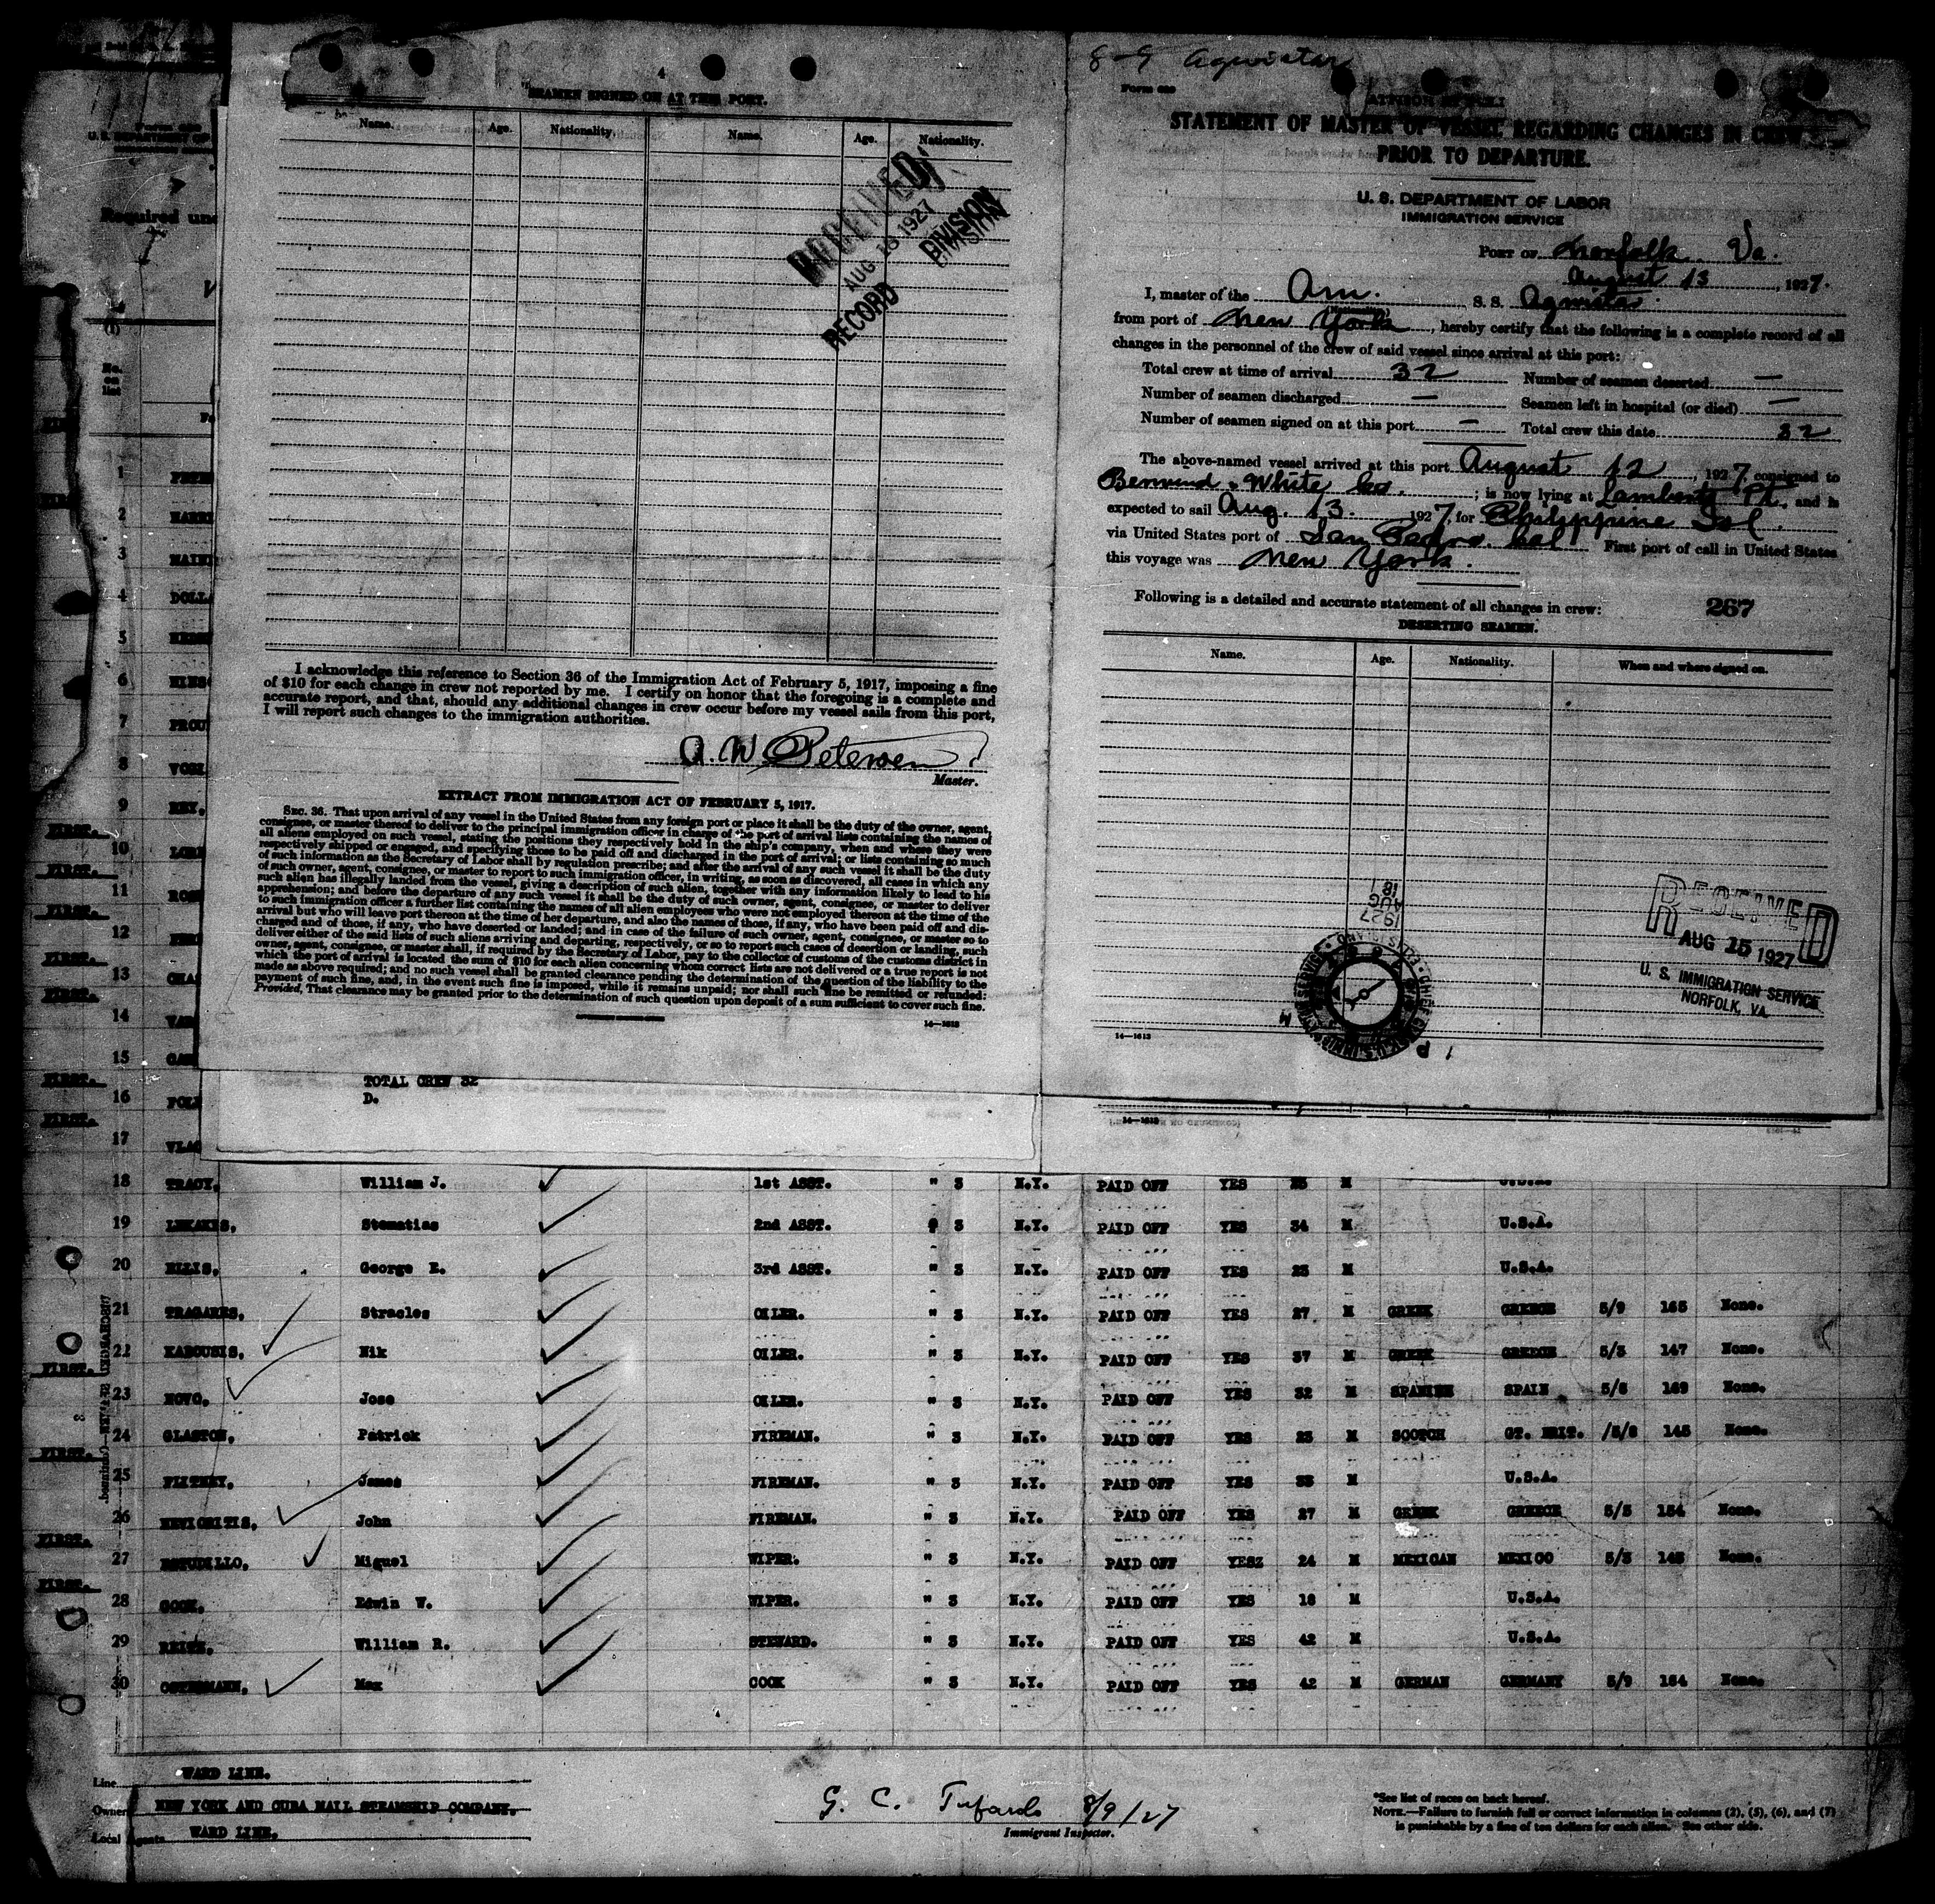 4
SEAMEN SIGNED ON AT THIS PORT.
Name. Age. Nationality. Name. Age. Nationality.
RECEIVED
AUG 18 1927
RECORD DIVISION
I acknowledge this reference to Section 36 of the Immigration Act of February 5, 1917, imposing a fine
of $10 for each change in crew not reported by me. I certify on honor that the foregoing is a complete and
accurate report, and that, should any additional changes in crew occur before my vessel sails from this port,
I will report such changes to the immigration authorities.
A. W. Petersen
Master.
EXTRACT FROM IMMIGRATION ACT OF FEBRUARY 5, 1917.
SEC. 36. That upon arrival of any vessel in the United States from any foreign port or place it shall be the duty of the owner, agent,
consignee, or master thereof to deliver to the principal immigration officer in charge of the port of arrival lists containing the names of
all aliens employed on such vessel, stating the positions they respectively hold in the ship's company, when and where they were
respectively shipped or engaged, and specifying those to be paid off and discharged in the port of arrival; or lists containing so much
of such information as the Secretary of Labor shall by regulation prescribe; and after the arrival of any such vessel it shall be the duty
of such owner, agent, consignee, or master to report to such immigration officer, in writing, as soon as discovered, all cases in which any
such alien has illegally landed from the vessel, giving a description of such alien, together with any information likely to lead to his
apprehension; and before the departure of any such vessel it shall be the duty of such owner, agent, consignee, or master to deliver
to such immigration officer a further list containing the names of all alien employees who were not employed thereon at the time of the
arrival but who will leave port thereon at the time of her departure, and also the names of those, if any, who have been paid off and dis-
charged and of those, if any, who have deserted or landed; and in case of the failure of such owner, agent, consignee, or master so to
deliver either of the said lists of such aliens arriving and departing, respectively, or so to report such cases of desertion or landing, such
owner, agent, consignee, or master shall, if required by the Secretary of Labor, pay to the collector of customs of the customs district in
which the port of arrival is located the sum of $10 for each alien concerning whom correct lists are not delivered or a true report is not
made as above required; and no such vessel shall be granted clearance pending the determination of the question of the liability to the
payment of such fine, and, in the event such fine is imposed, while it remains unpaid; nor shall such fine be remitted or refunded:
Provided, That clearance may be granted prior to the determination of such question upon deposit of a sum sufficient to cover such fine.
14—1613
TOTAL CREW 32
D.
8-9 Agwistar
STATEMENT OF MASTER OF VESSEL REGARDING CHANGES IN CREW
PRIOR TO DEPARTURE.
U. S. DEPARTMENT OF LABOR
IMMIGRATION SERVICE
PORT OF Norfolk Va.
August 13, 1927.
I, master of the Am. S. S. Agwistar
from port of New York, hereby certify that the following is a complete record of all
changes in the personnel of the crew of said vessel since arrival at this port:
Total crew at time of arrival 32 Number of seamen deserted —
Number of seamen discharged — Seamen left in hospital (or died) —
Number of seamen signed on at this port — Total crew this date 32
The above-named vessel arrived at this port August 12, 1927, consigned to
Berwind White Co.; is now lying at Lamberts Pt. and is
expected to sail Aug. 13. 1927, for Philippine Isl.
via United States port of San Pedro. Cal First port of call in United States
this voyage was New York.
Following is a detailed and accurate statement of all changes in crew: 267
DESERTING SEAMEN.
Name. Age. Nationality. When and where signed on.
RECEIVED
AUG 15 1927
U. S. IMMIGRATION SERVICE
NORFOLK, VA.
1927
AUG
18
14—1613
U. S. DEPARTMENT OF
Required und
No.
on
list
1
2
3
4 DOLL
5
6
7 PROU
8 VOSL
9 REY,
10
11
12
13
14
15
16
17
18 TRACY, William J. 1st ASST. " 3 N.Y. PAID OFF YES M
19 LEKAKES, Stematias 2nd ASST. 3 N.Y. PAID OFF YES 34 M U.S.A.
20 ELLIS, George E. 3rd ASST. " 3 N.Y. PAID OFF YES 23 M U.S.A.
21 TRAGAKES, Stracles OILER. " 3 N.Y. PAID OFF YES 27 M GREEK GREECE 5/9 165 None.
22 KABOUSIS, Nik OILER. " 3 N.Y. PAID OFF YES 37 M GREEK GREECE 5/3 147 None.
23 NOVO, Jose OILER. " 3 N.Y. PAID OFF YES 32 M SPANISH SPAIN 5/6 169 None.
24 GLASTON, Patrick FIREMAN. " 3 N.Y. PAID OFF YES 23 M SCOTCH GT. BRIT. /5/8 145 None.
25 FLITNEY, James FIREMAN. " 3 N.Y. PAID OFF YES 33 M U.S.A.
26 John FIREMAN. " 3 N.Y. PAID OFF YES 27 M GREEK GREECE 5/5 154 None.
27 ESTUDILLO, Miguel WIPER. " 3 N.Y. PAID OFF YESZ 24 M MEXICAN MEXICO 5/5 145 None.
28 COOK, Edwin W. WIPER. " 3 N.Y. PAID OFF YES 18 M U.S.A.
29 William R. STEWARD. " 3 N.Y. PAID OFF YES 42 M U.S.A.
30 OSTERMANN, Max COOK " 3 N.Y. PAID OFF YES 42 M GERMAN GERMANY 5/9 154 None.
FIRST.
FIRST.
FIRST.
FIRST.
FIRST.
FIRST.
FIRST.
FIRST.
FIRST.
FIRST.
FIRST.
Line WARD LINE.
Owner NEW YORK AND CUBA MAIL STEAMSHIP COMPANY.
Local Agents WARD LINE.
G. C. 8/9/27
Immigrant Inspector.
*See list of races on back hereof.
NOTE.—Failure to furnish full or correct information in columns (2), (5), (6), and (7)
is punishable by a fine of ten dollars for each alien. See other side.